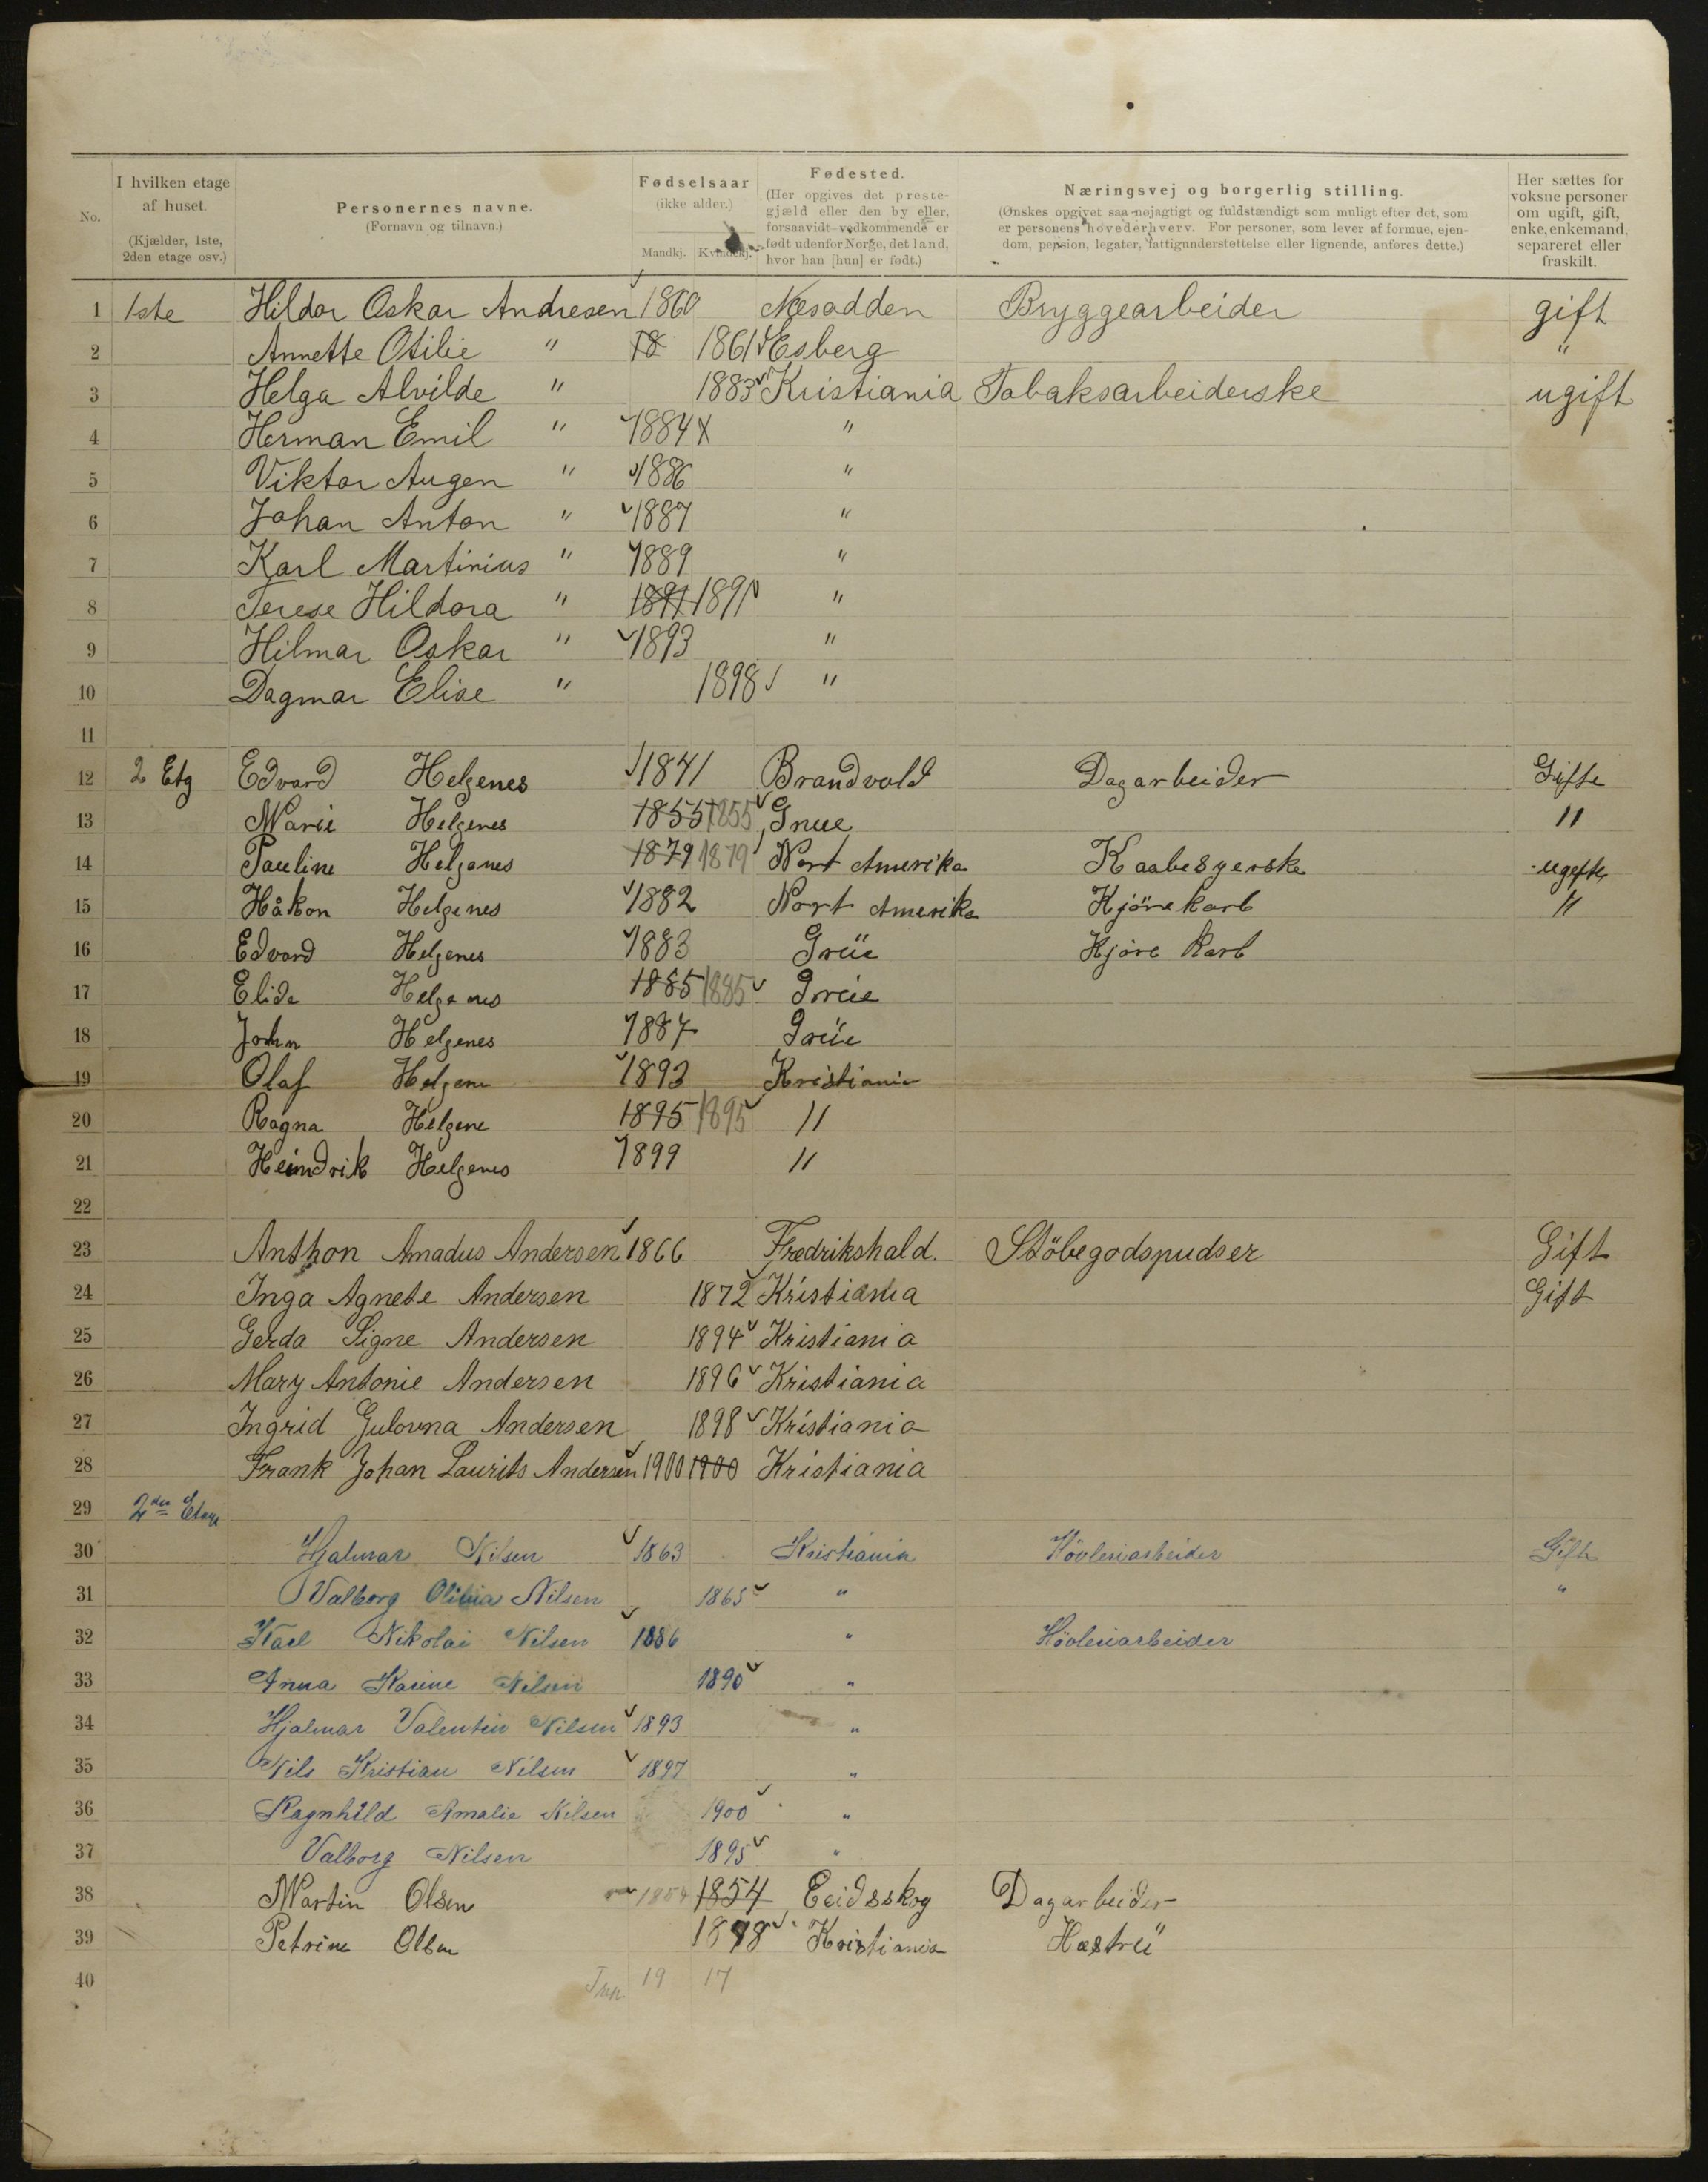 No.
I hvilken etage af huset. (Kjælder, 1ste, 2den etage osv.)
Personernes navne. (Fornavn og tilnavn.)
Fødselsaar (ikke alder.) Mandkj. Kvindekj.
Fødested. (Her opgives det prestegjæld eller den by eller, forsaavidt vedkommende er født udenfor Norge, det land, hvor han [hun] er født.)
Næringsvej og borgerlig stilling. (Ønskes opgivet saa nøjagtigt og fuldstændigt som muligt efter det, som er personens hovederhverv. For personer, som lever af formue, ejendom, pension, legater, fattigunderstøttelse eller lignende, anføres dette.)
Her sættes for voksne personer om ugift, gift, enke, enkemand, separeret eller fraskilt.
1 1ste Hildor Oskar Andresen 1860 Nesodden Bryggearbeider gift
2 Annette Otilie " 18 1861 Esberg "
3 Helga Alvilde " 1883 Kristiania Tobaksarbeiderske ugift
4 Herman Emil " 1884 x "
5 Viktor Augen " 1886 "
6 Johan Anton " 1887 "
7 Karl Martinius " 1889 "
8 Terese Hildora " 1891 1891 "
9 Hilmar Oskar " 1893 "
10 Dagmar Elise " 1898 "
11
12 2 Etg Edvard Helgenes 1841 Brandvold Dagarbeider Gifte
13 Marie Helgenes 1855 1855 Grue "
14 Pauline Helgenes 1879 1879 Nort Amerika Kaabesyerske ugefte
15 Håkon Helgenes 1882 Nort Amerika Kjöre karl "
16 Edvard Helgenes 1883 Grüe Kjöre Karl
17 Elida Helgenes 1885 1885 Grüe
18 John Helgenes 1887 Grüe
19 Olaf Helgene 1893 Kristiania
20 Ragna Helgene 1895 1895 "
21 Heindrik Helgenes 1899 "
22
23 Anthon Amadus Andersen 1866 Fredrikshald. Stöbegodspudser Gift
24 Inga Agnete Andersen 1872 Kristiania Gift
25 Gerda Signe Andersen 1894 Kristiania
26 Mary Antonie Andersen 1896 Kristiania
27 Ingrid Gulovna Andersen 1898 Kristiania
28 Frank Johan Laurits Andersen 1900 1900 Kristiania
29 2den Etage
30 Hjalmar Nilsen 1863 Kristiania Hövleriarbeider Gift
31 Valborg Olivia Nilsen 1865 " "
32 Karl Nikolai Nilsen 1886 " Hövleriarbeider
33 Anna Karine Nilsen 1890 "
34 Hjalmar Valentin Nilsen 1893 "
35 Nils Kristian Nilsen 1897 "
36 Ragnhild Amalie Nilsen 1900 "
37 Valborg Nilsen 1895 "
38 Martin Olsen 1854 1854 Eeidsskog Dagarbeider
39 Petrine Olsen 1878 Kristiania Hustrü
40 19 17